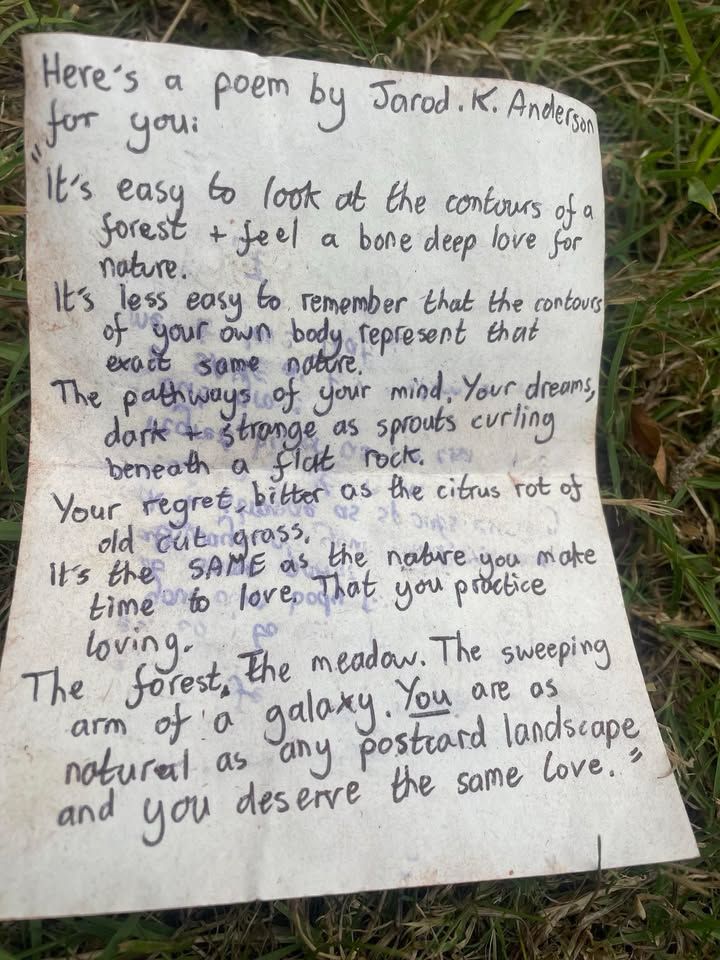 Here's a poem by Jarod. K. Anderson
for you:
"It's easy to look at the contours of a
forest + feel a bone deep love for
nature.
It's less easy to remember that the contours
of your own body represent that
exact same nature.
The pathways of your mind. Your dreams,
dark + strange as sprouts curling
beneath a flat rock.
Your regret, bitter as the citrus rot of
old cut grass.
It's the SAME as the nature you make
time to love. That you practice
loving.
The forest, the meadow. The sweeping
arm of a galaxy. You are as
natural as any postcard landscape
and you deserve the same love."